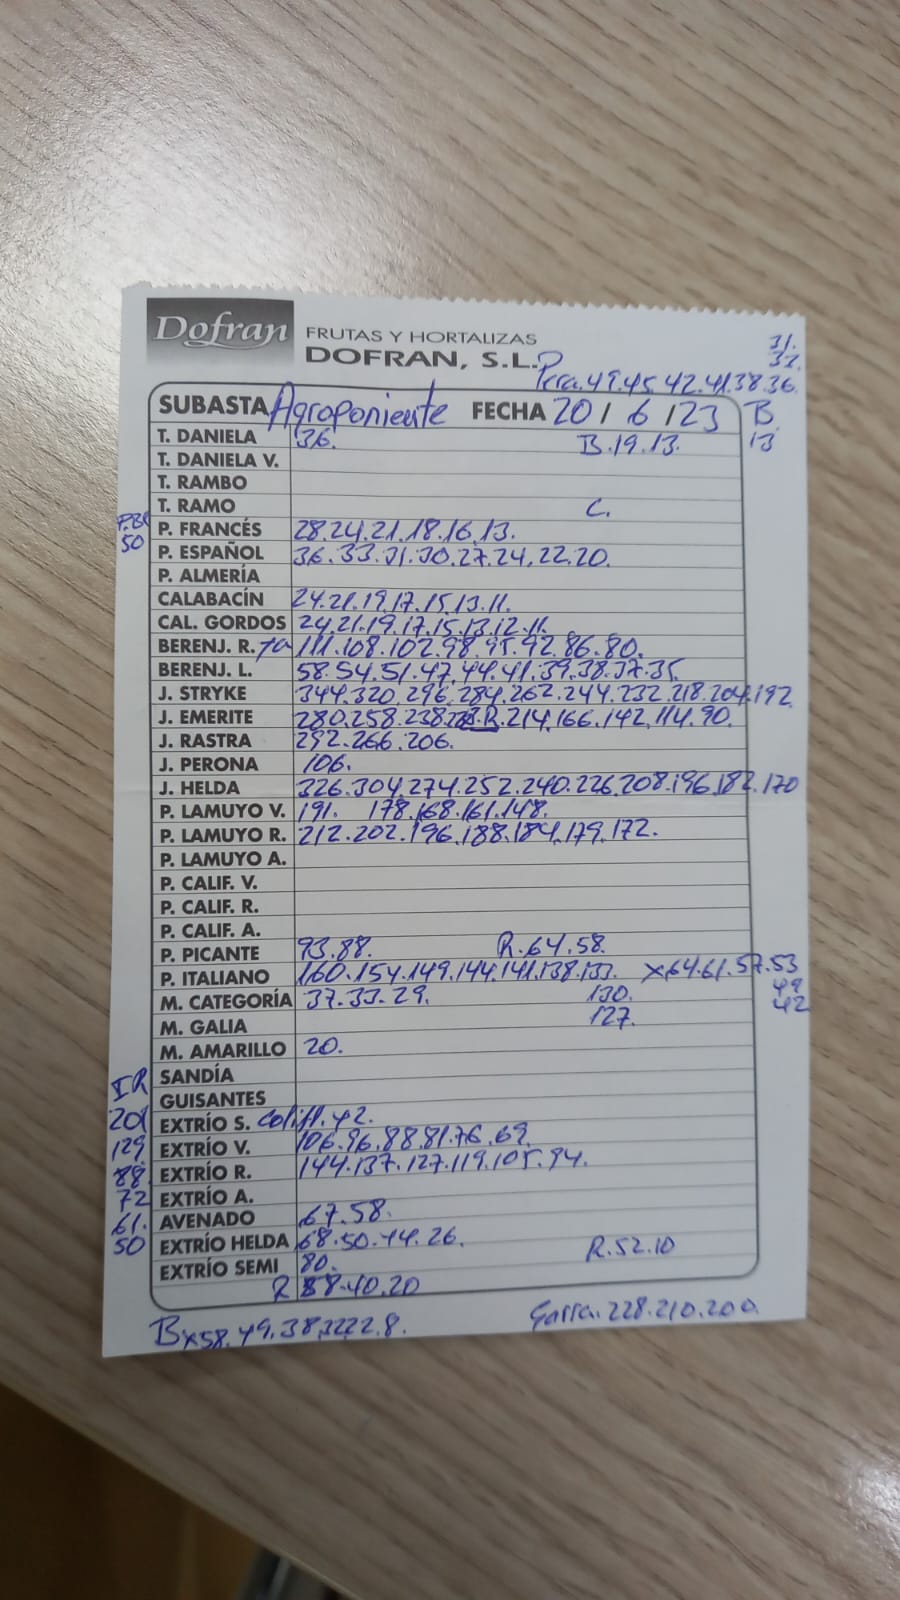 Dofran
FRUTAS Y HORTALIZAS
DOFRAN, S.L.
31.
Pera.49.45.42.41.38.36.
SUBASTA Agroponiente FECHA 20 / 6 / 23 B.
13
T. DANIELA 36. B.19.13.
T. DANIELA V.
T. RAMBO
T. RAMO C.
50
P. FRANCÉS 28.24.21.18.16.13.
P. ESPAÑOL 36.33.31.30.27.24.22.20.
P. ALMERÍA
CALABACÍN 24.21.19.17.15.13.11.
CAL. GORDOS 24.21.19.17.15.13.12.11.
BERENJ. R. 111.108.102.98.95.92.86.80.
BERENJ. L. 58.54.51.47.44.41.39.38.37.35.
J. STRYKE 344.320.296.284.262.244.232.218.204.192
J. EMERITE 280.258.238. R.214.166.142.114.90.
J. RASTRA 292.266.206.
J. PERONA 106.
J. HELDA 326.304.274.252.240.226.208.196.182.170
P. LAMUYO V. 191. 178.168.161.148.
P. LAMUYO R. 212.202.196.188.184.179.172.
P. LAMUYO A.
P. CALIF. V.
P. CALIF. R.
P. CALIF. A.
P. PICANTE 93.88. R.64.58.
P. ITALIANO 160.154.149.144.141.138.133. x64.61.57.53
49
42
M. CATEGORÍA 37.33.29. 130.
M. GALIA 127.
M. AMARILLO 20.
IR SANDÍA
GUISANTES
201 EXTRÍO S. Colifl.42.
129 EXTRÍO V. 106.96.88.81.76.69.
88. EXTRÍO R. 144.137.127.119.105.94.
72 EXTRÍO A.
61. AVENADO 67.58.
50 EXTRÍO HELDA 68.50.44.26. R.52.10
EXTRÍO SEMI 80.
R 40.20
Bx58.49.38.32.22.8.
Garra.228.210.200.